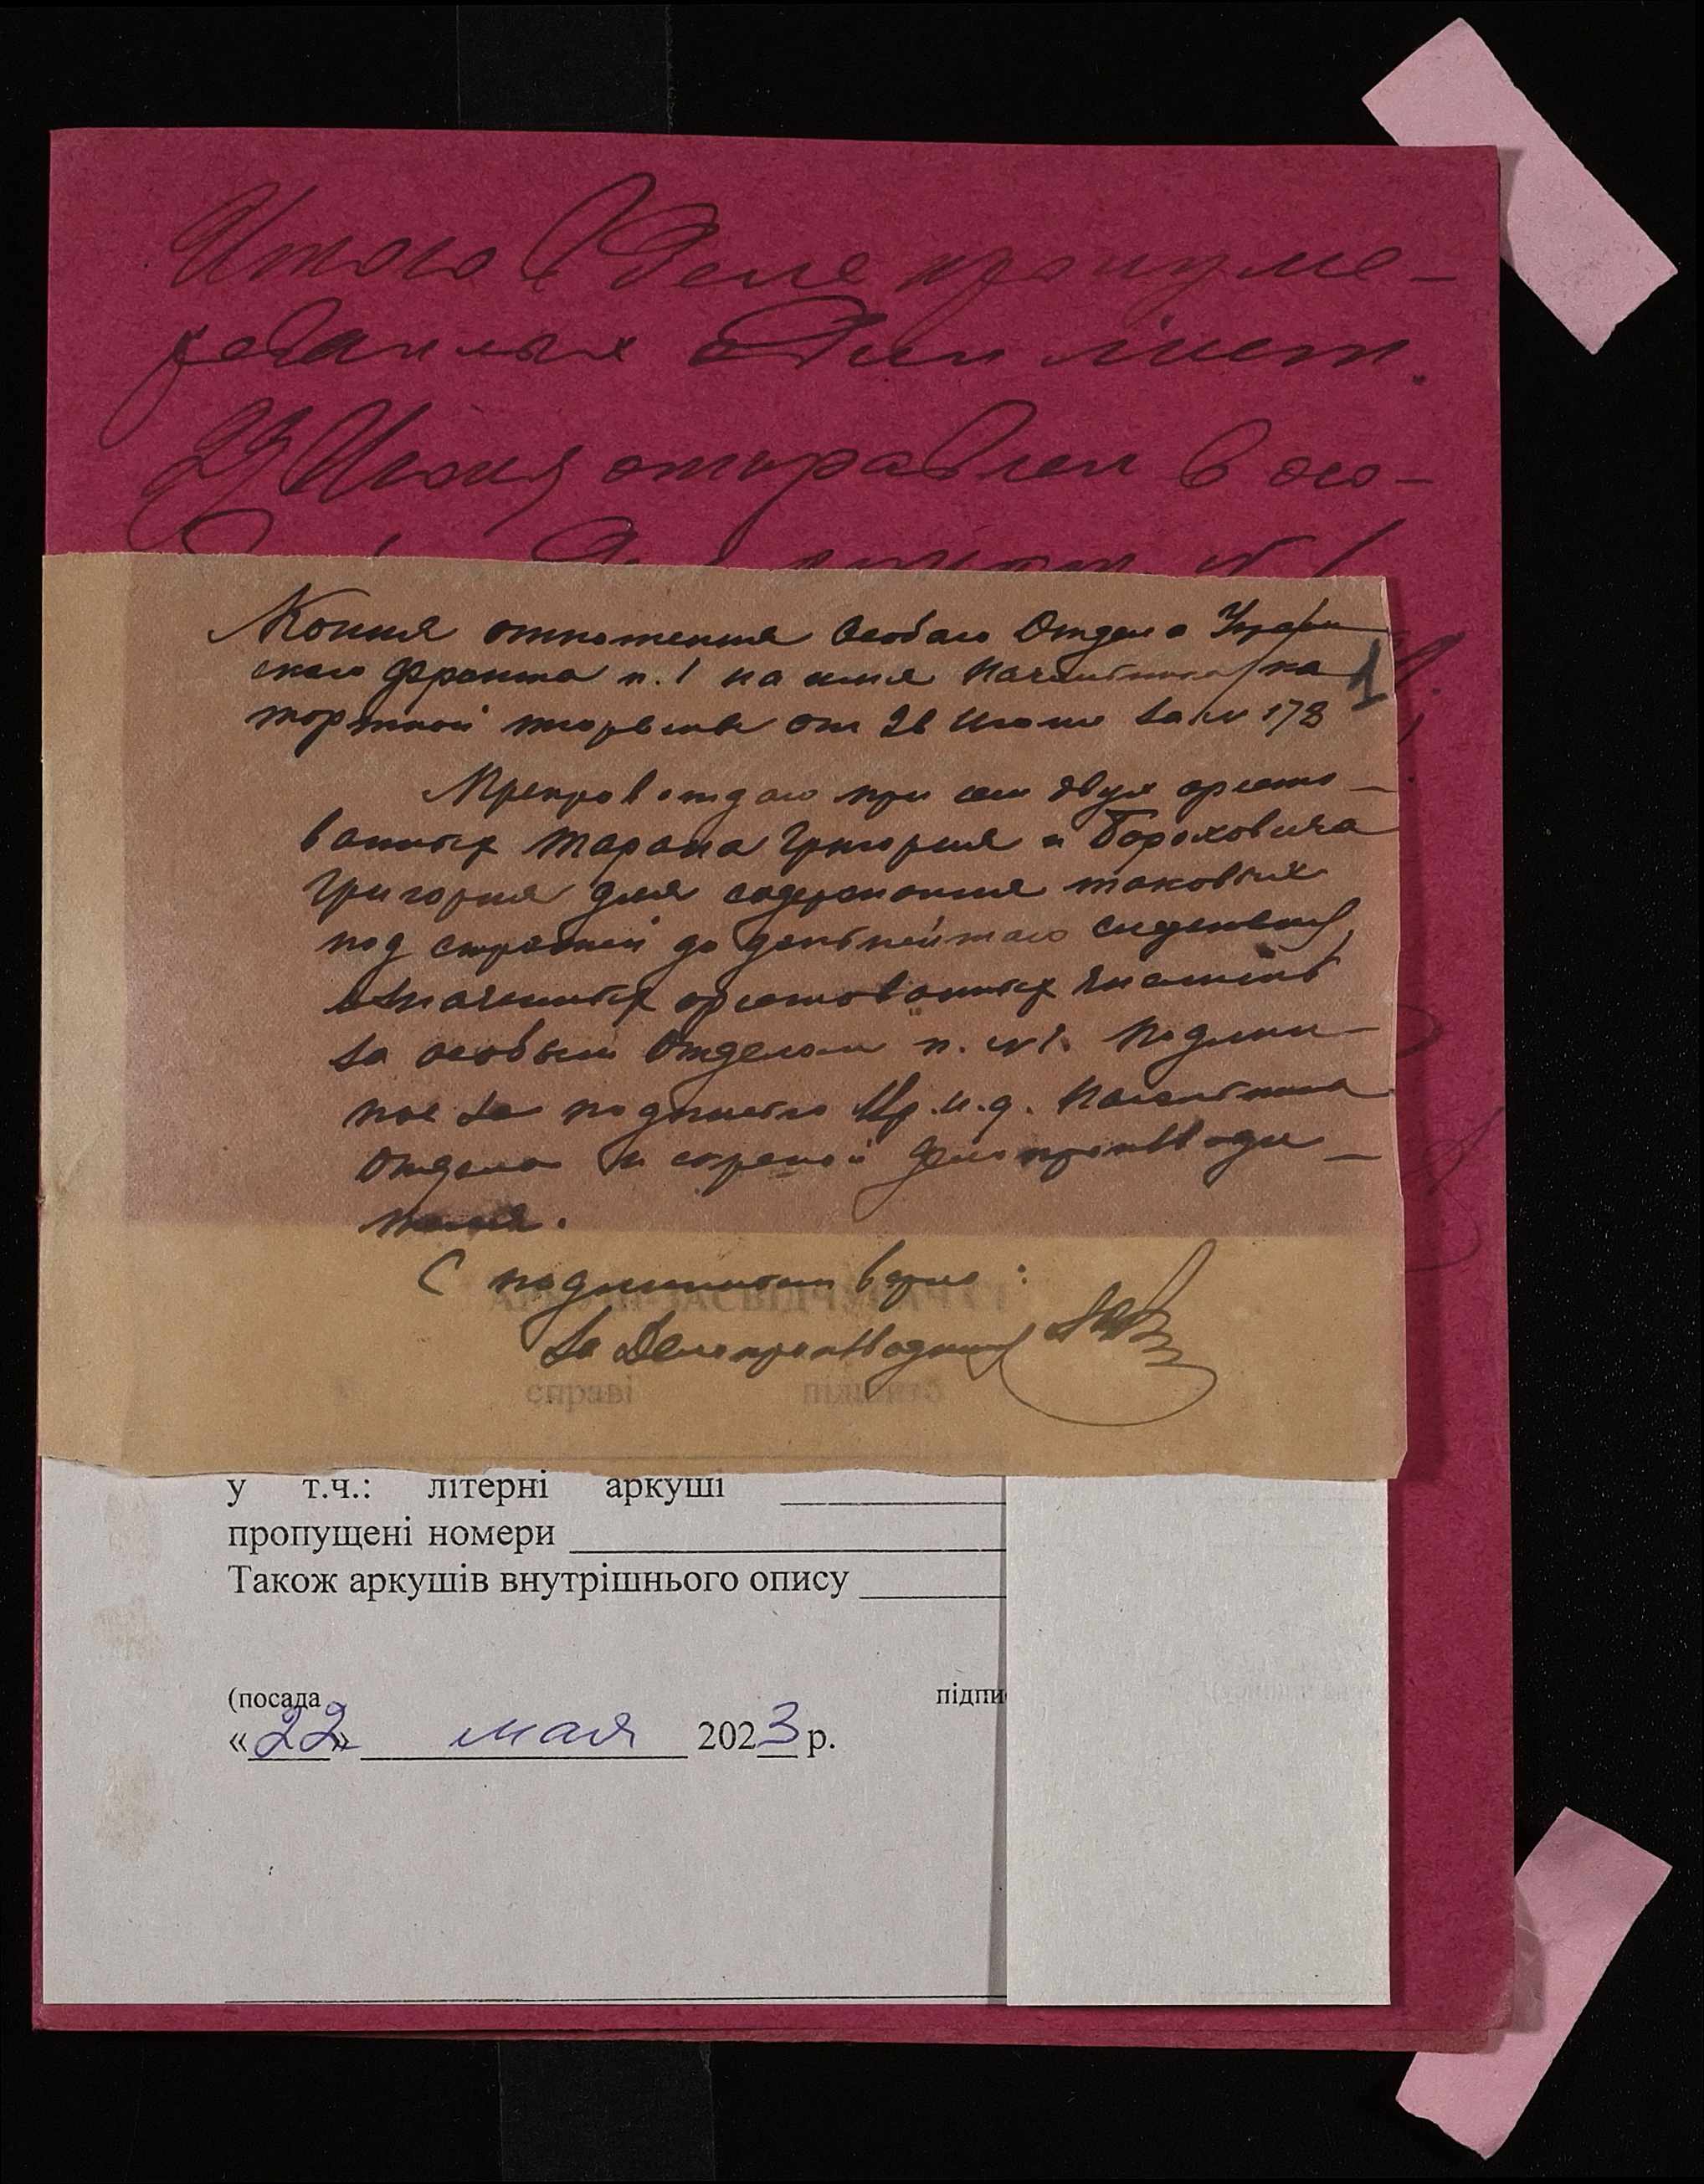 Итого в Деле пронуме-
рованных один лист.
23 Июня отправлен в осо-
Копия отношения Особаго Отдела Украин
скаго фронта п. 1 на имя Начальника ка
торжной тюрьмы от 26 Июня за № 178
1
Препровождаю при сем двух аресто-
ванных Тарана Григория и Бороховича
Григория для содержания таковых
под стражей до дальнейшаго
означенных арестованных числить
за особым Отделом п. № 1. Подлин-
ное за подписью Вр.И.д. Начальника
Отдела и скрепой Делопроизводи-
теля.
С подлинным верно:
За Делопроизводителя
справі підшито
у т.ч.: літерні аркуші
пропущені номери
Також аркушів внутрішнього опису
(посада підпи
«22» мая 2023 р.